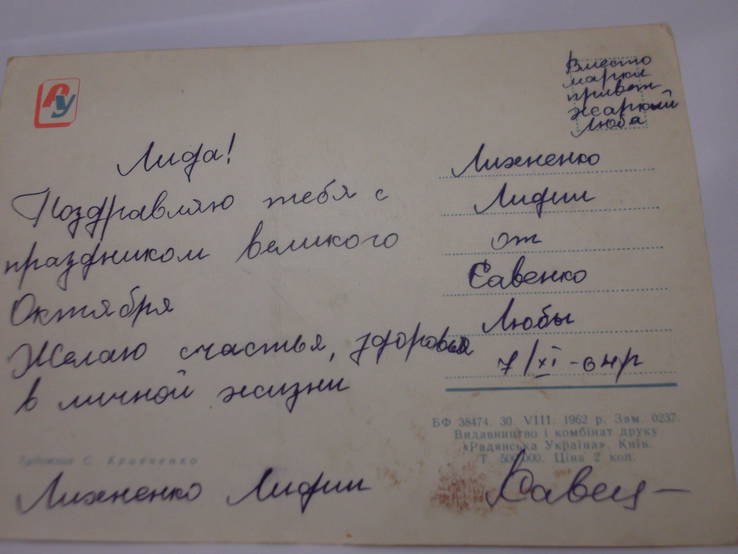 РУ
Вместо
марки
привет
жаркий
Люба
Лида!
Поздравляю тебя с
праздником великого
Октября
Желаю счастья, здоровья
в личной жизни
Лихненко
Лидии
от
Савенко
Любы
7/XI-64г
БФ 38474. 30. VIII. 1962 р. Зам. 0237.
Видавництво і комбінат друку
«Радянська Україна». Київ.
Т. 500000. Ціна 2 коп.
Художник С. Кравченко
Лихненко Лидии